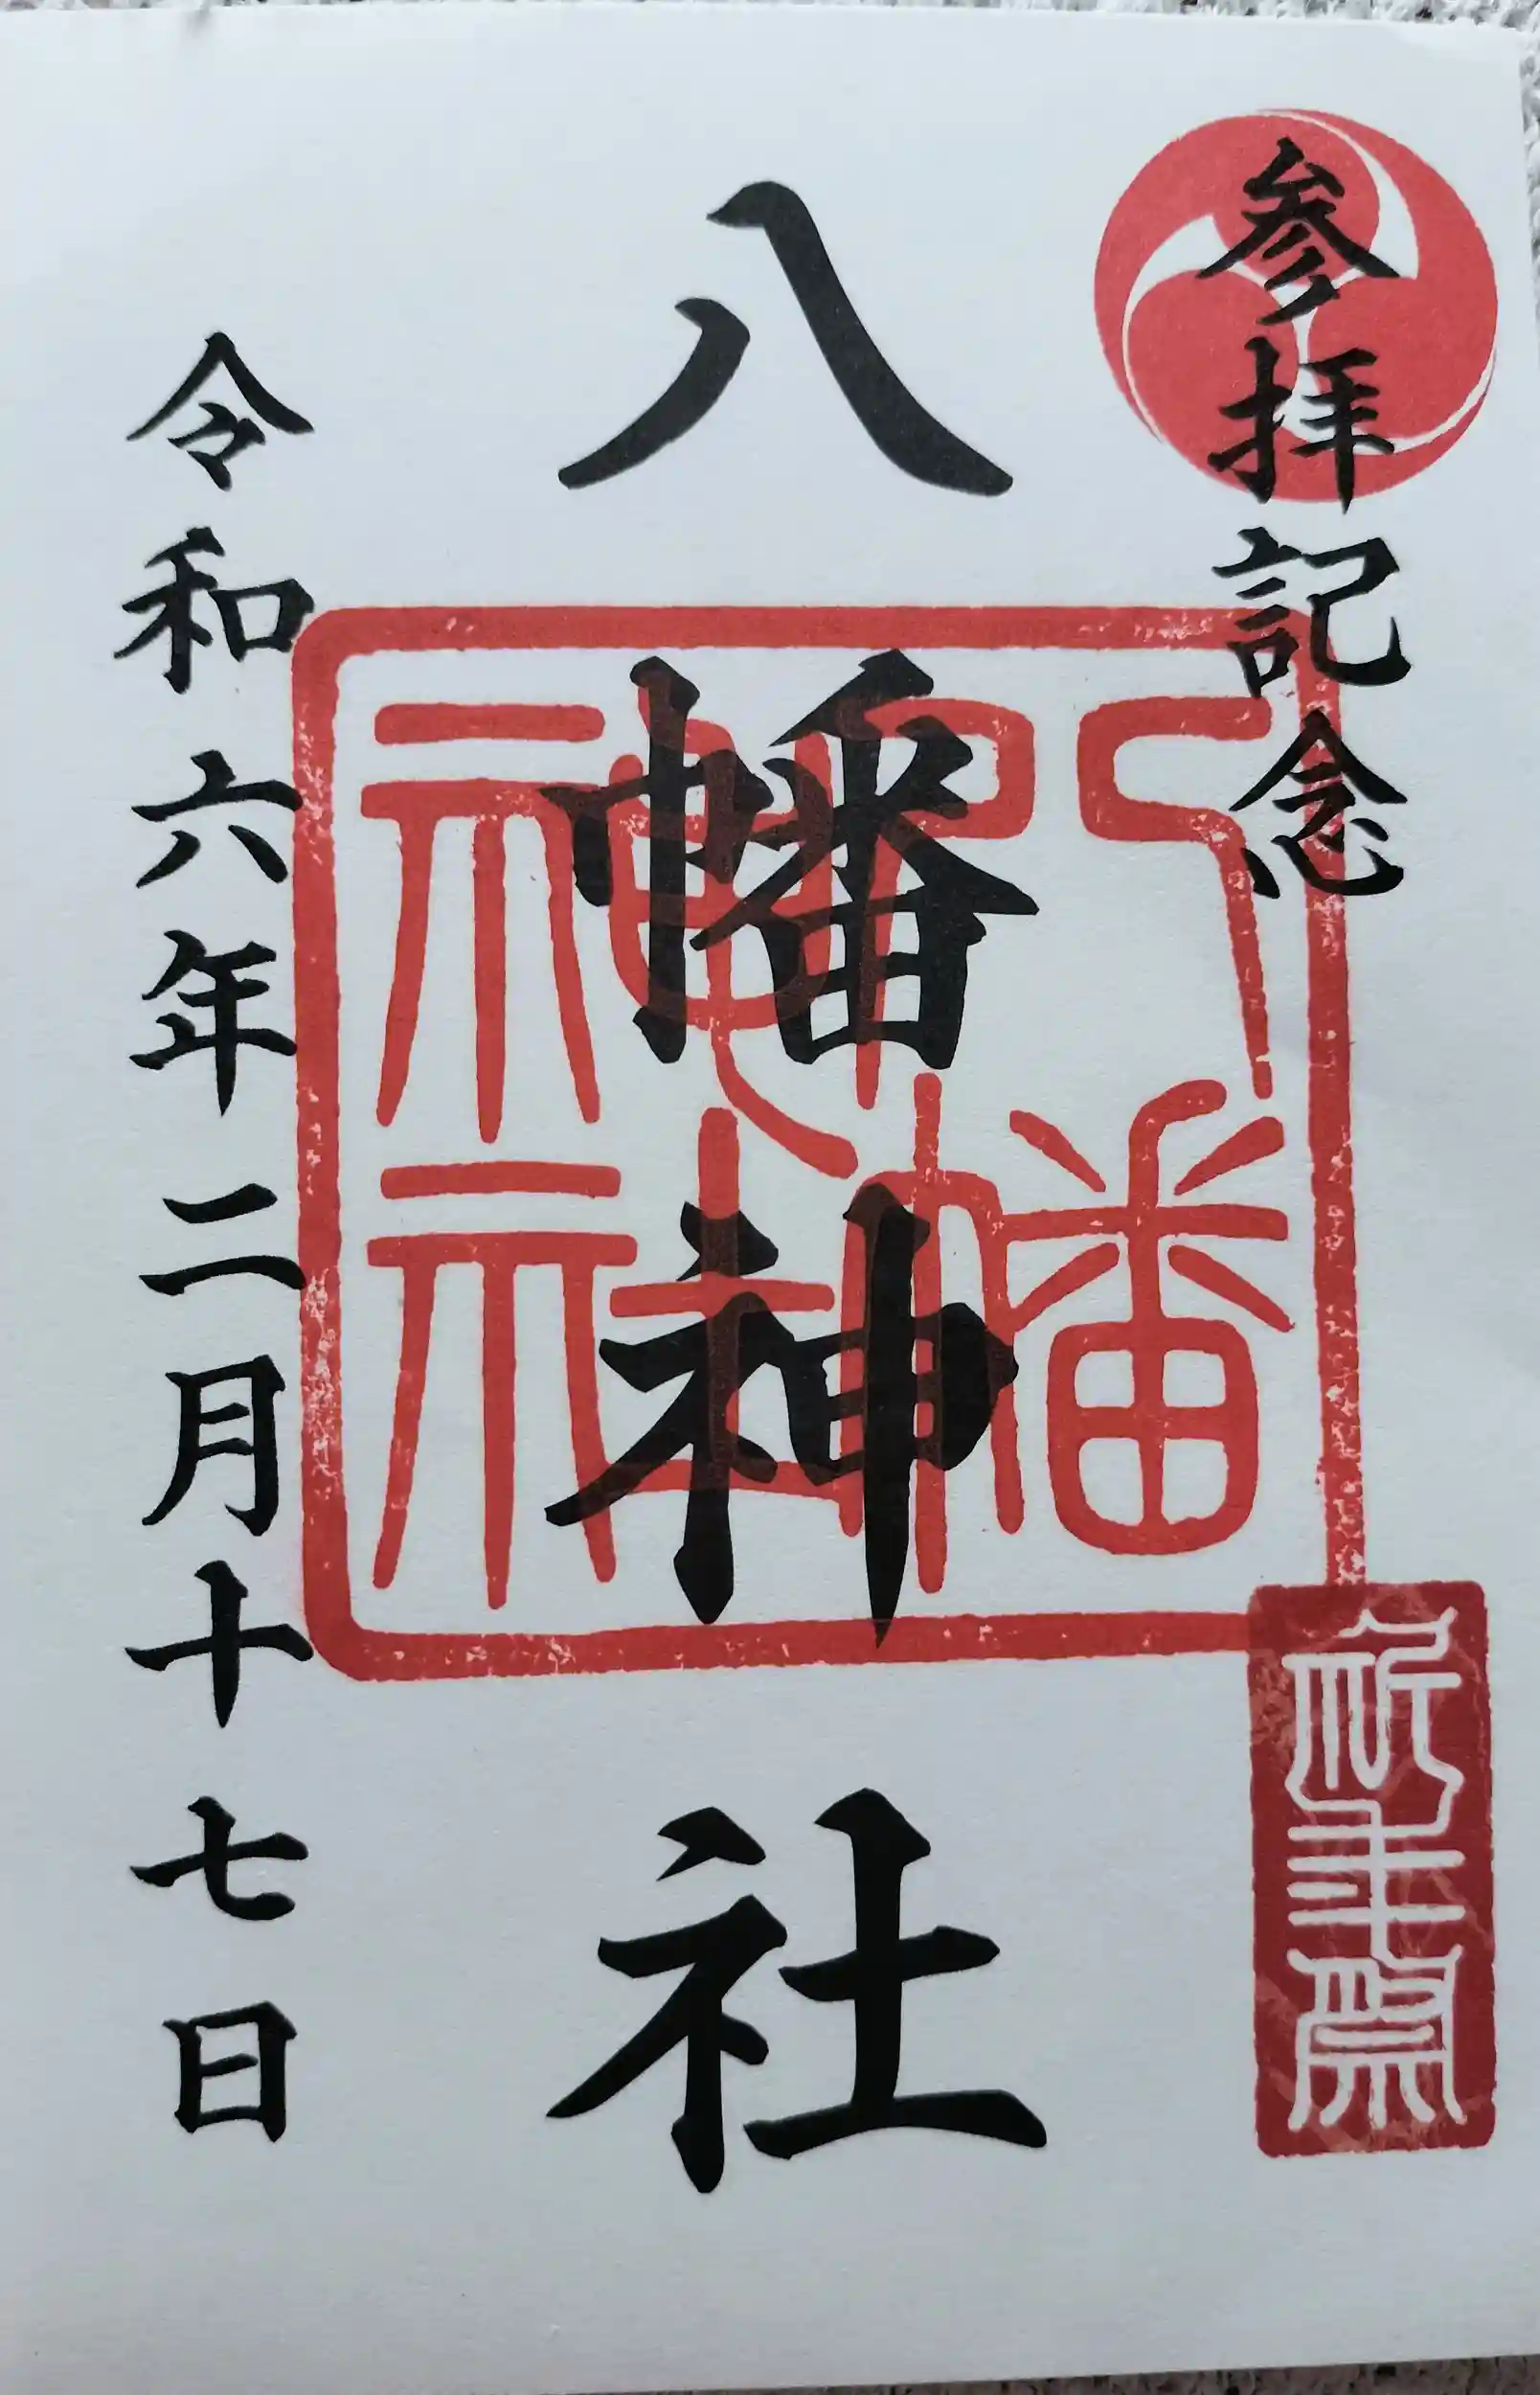 参拝記念
八幡神社
八幡神社
祈年祭
令和六年二月十七日